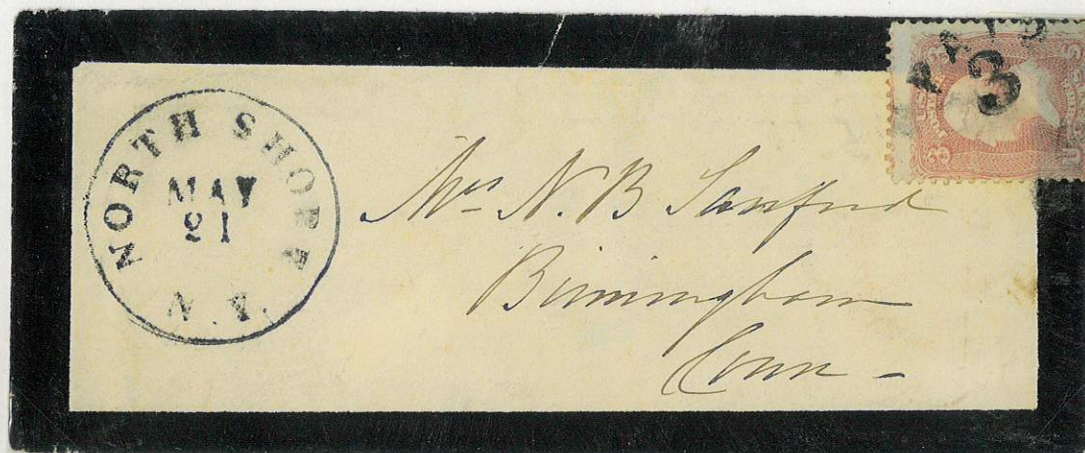 NORTH SHORE
MAY
21
N.Y.
PAID
3
3
3
U
Mrs N. B. Sanford
Birmingham
Conn -